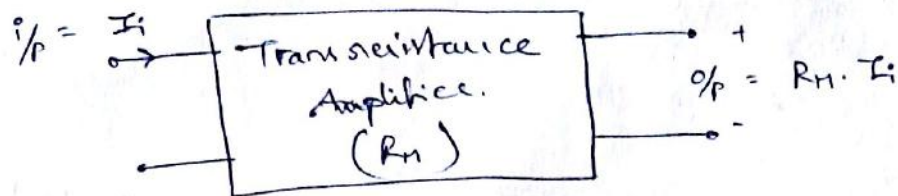 i/p = Ii
Transresistance
Amplifier.
(RM)
+
o/p = RM. Ii
-